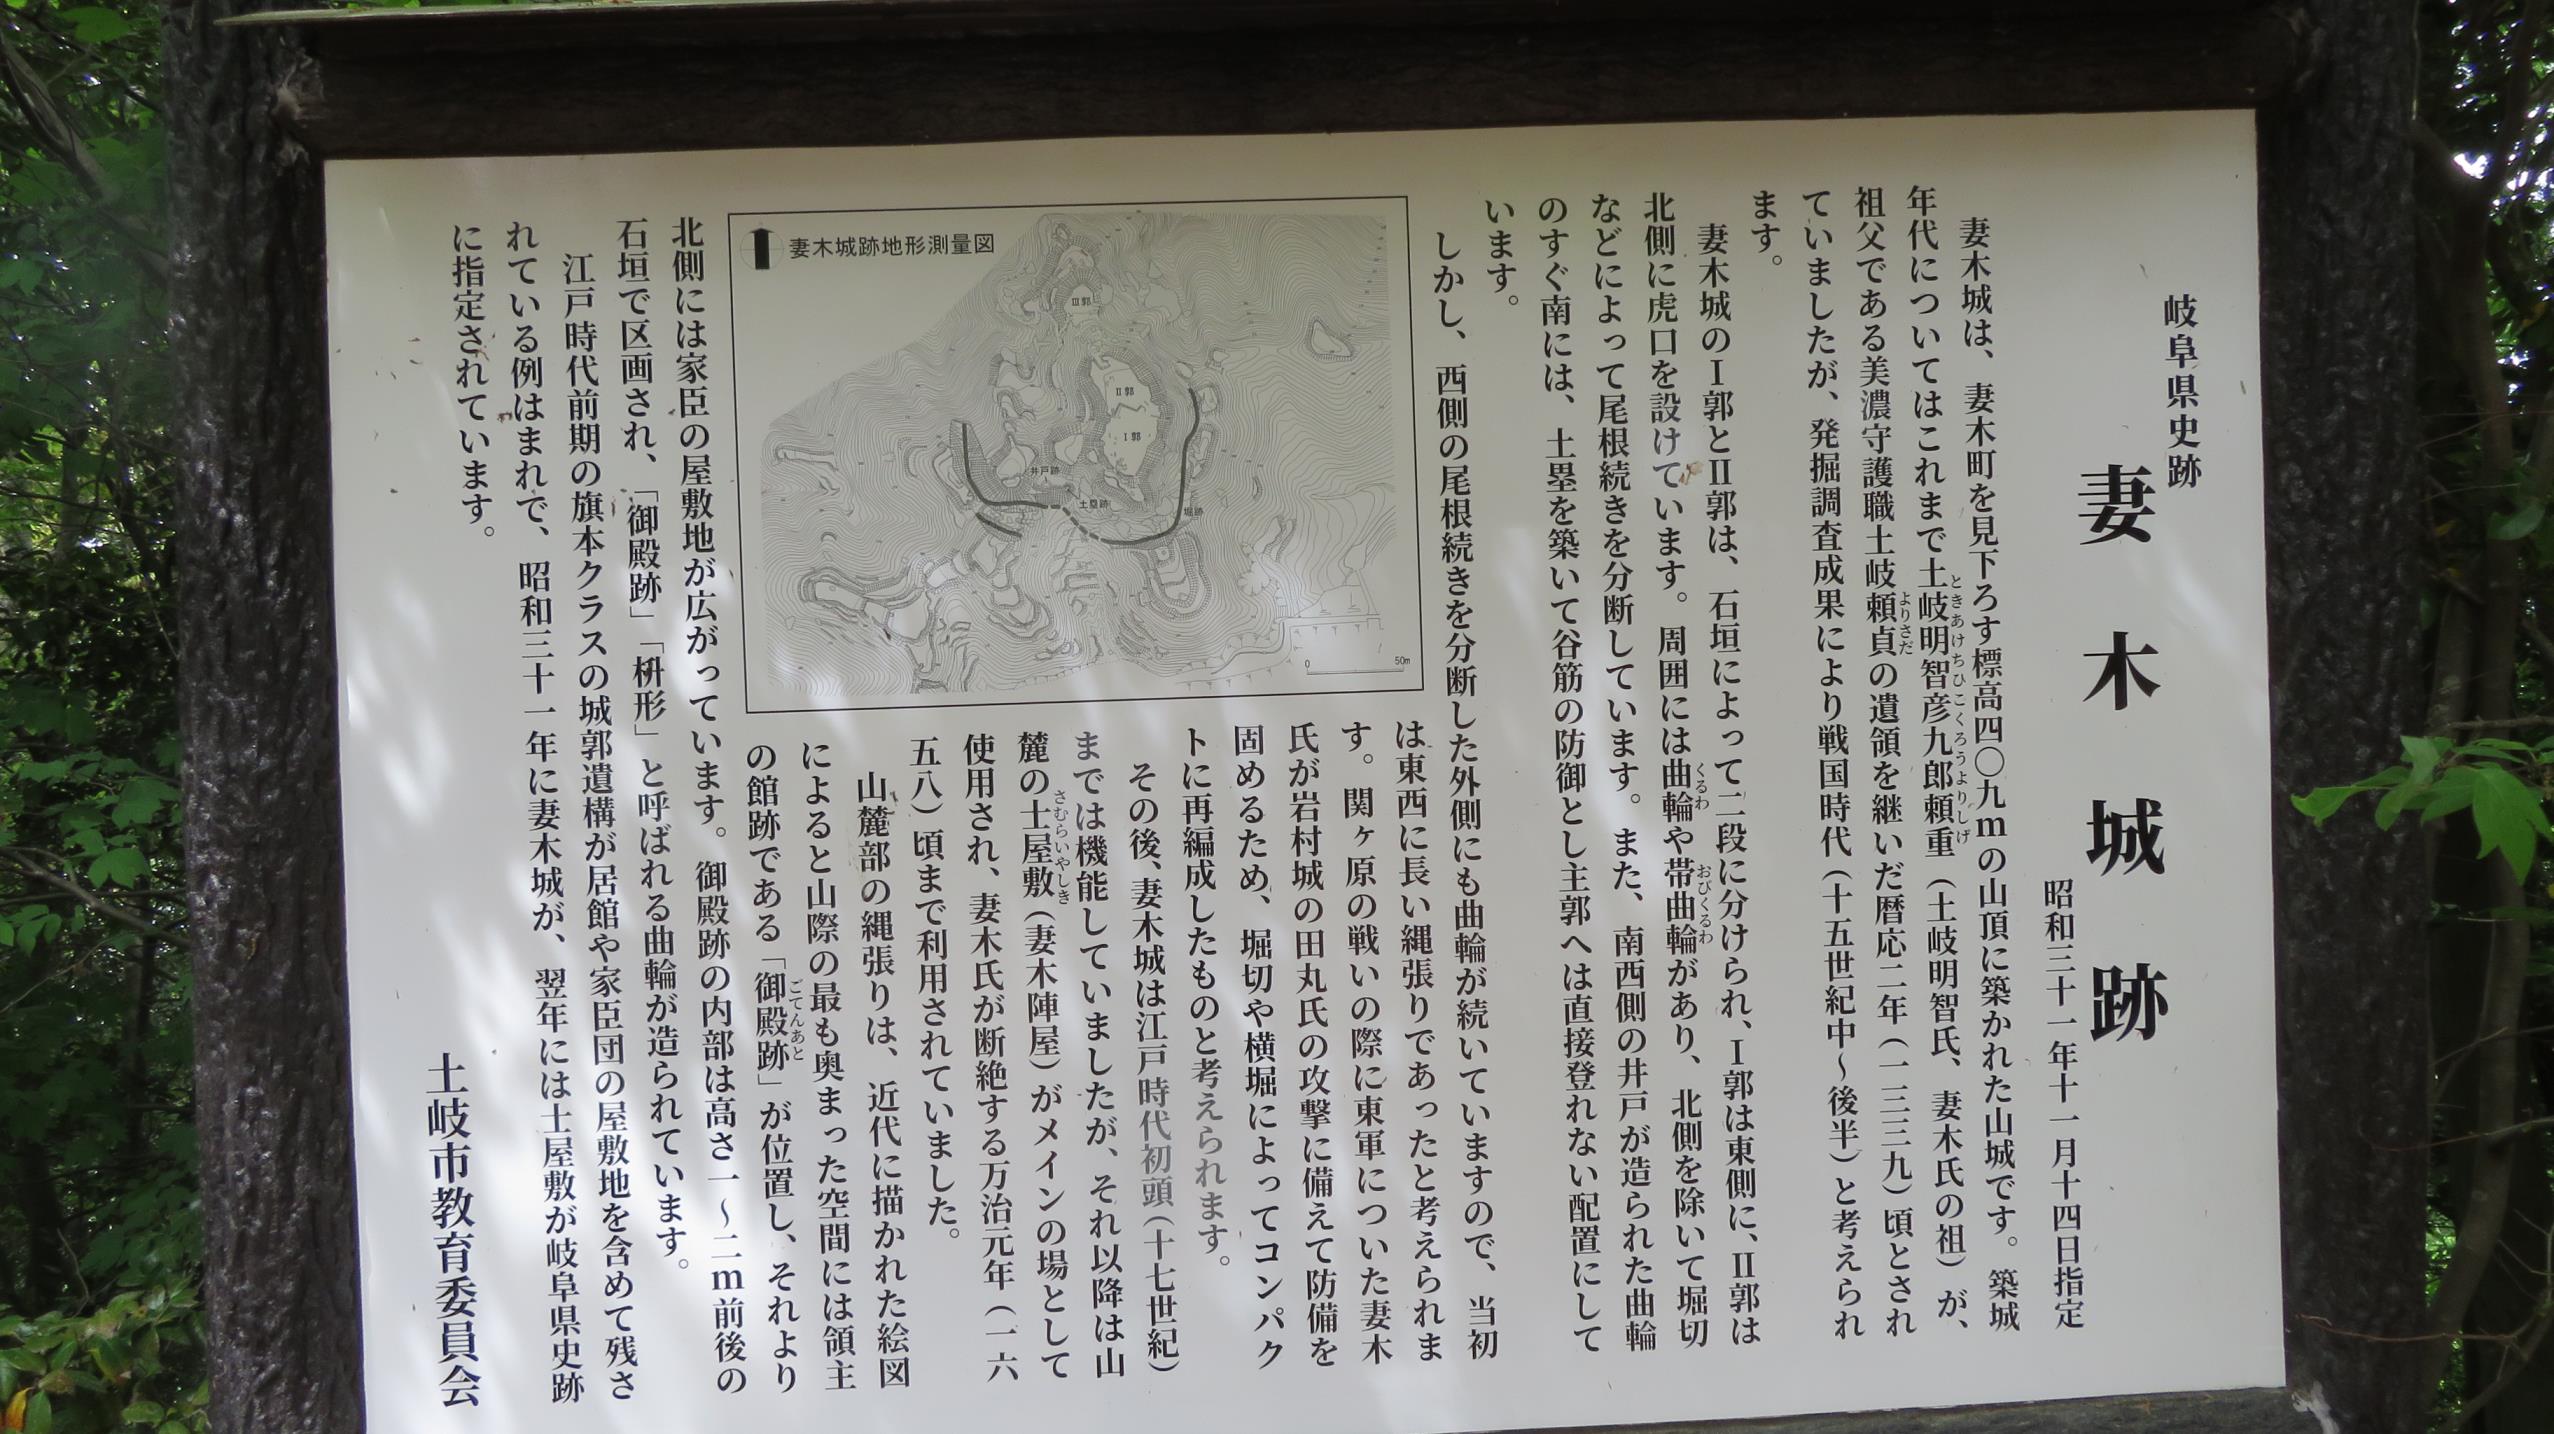 岐阜県史跡
妻木城跡
昭和三十一年十一月十四日指定
妻木城は、妻木町を見下ろす標高四〇九mの山頂に築かれた山城です。築城
年代についてはこれまで土岐明智彦九郎頼重（土岐明智氏、妻木氏の祖）が、
ときあけちひこくろうよりしげ
祖父である美濃守護職土岐頼貞の遺領を継いだ暦応二年（一三三九）頃とされ
よりさだ
ていましたが、発掘調査成果により戦国時代（十五世紀中～後半）と考えられ
ます。
妻木城のⅠ郭とⅡ郭は、石垣によって二段に分けられ、Ⅰ郭は東側に、Ⅱ郭は
北側に虎口を設けています。周囲には曲輪や帯曲輪があり、北側を除いて堀切
くるわ
おびくるわ
などによって尾根続きを分断しています。また、南西側の井戸が造られた曲輪
のすぐ南には、土塁を築いて谷筋の防御とし主郭へは直接登れない配置にして
います。
しかし、西側の尾根続きを分断した外側にも曲輪が続いていますので、当初
は東西に長い縄張りであったと考えられま
す。関ヶ原の戦いの際に東軍についた妻木
氏が岩村城の田丸氏の攻撃に備えて防備を
固めるため、堀切や横堀によってコンパク
トに再編成したものと考えられます。
その後、妻木城は江戸時代初頭（十七世紀）
までは機能していましたが、それ以降は山
麓の士屋敷（妻木陣屋）がメインの場として
さむらいやしき
使用され、妻木氏が断絶する万治元年（一六
五八）頃まで利用されていました。
山麓部の縄張りは、近代に描かれた絵図
によると山際の最も奥まった空間には領主
の館跡である「御殿跡」が位置し、それより
ごてんあと
北側には家臣の屋敷地が広がっています。御殿跡の内部は高さ一～二m前後の
石垣で区画され、「御殿跡」「枡形」と呼ばれる曲輪が造られています。
江戸時代前期の旗本クラスの城郭遺構が居館や家臣団の屋敷地を含めて残さ
れている例はまれで、昭和三十一年に妻木城が、翌年には士屋敷が岐阜県史跡
に指定されています。
土岐市教育委員会
妻木城跡地形測量図
Ⅲ郭
Ⅱ郭
Ⅰ郭
井戸跡
土塁跡
堀跡
0 50m